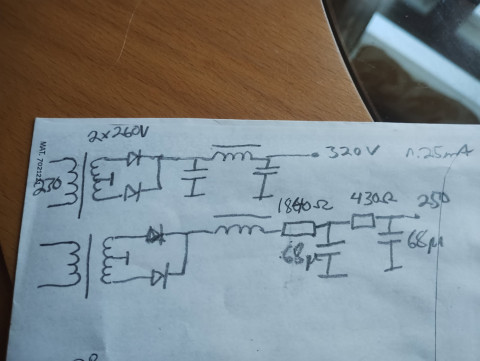 2x260V
230
320V
25mA
1840Ω
430Ω
250
68µ
68µ